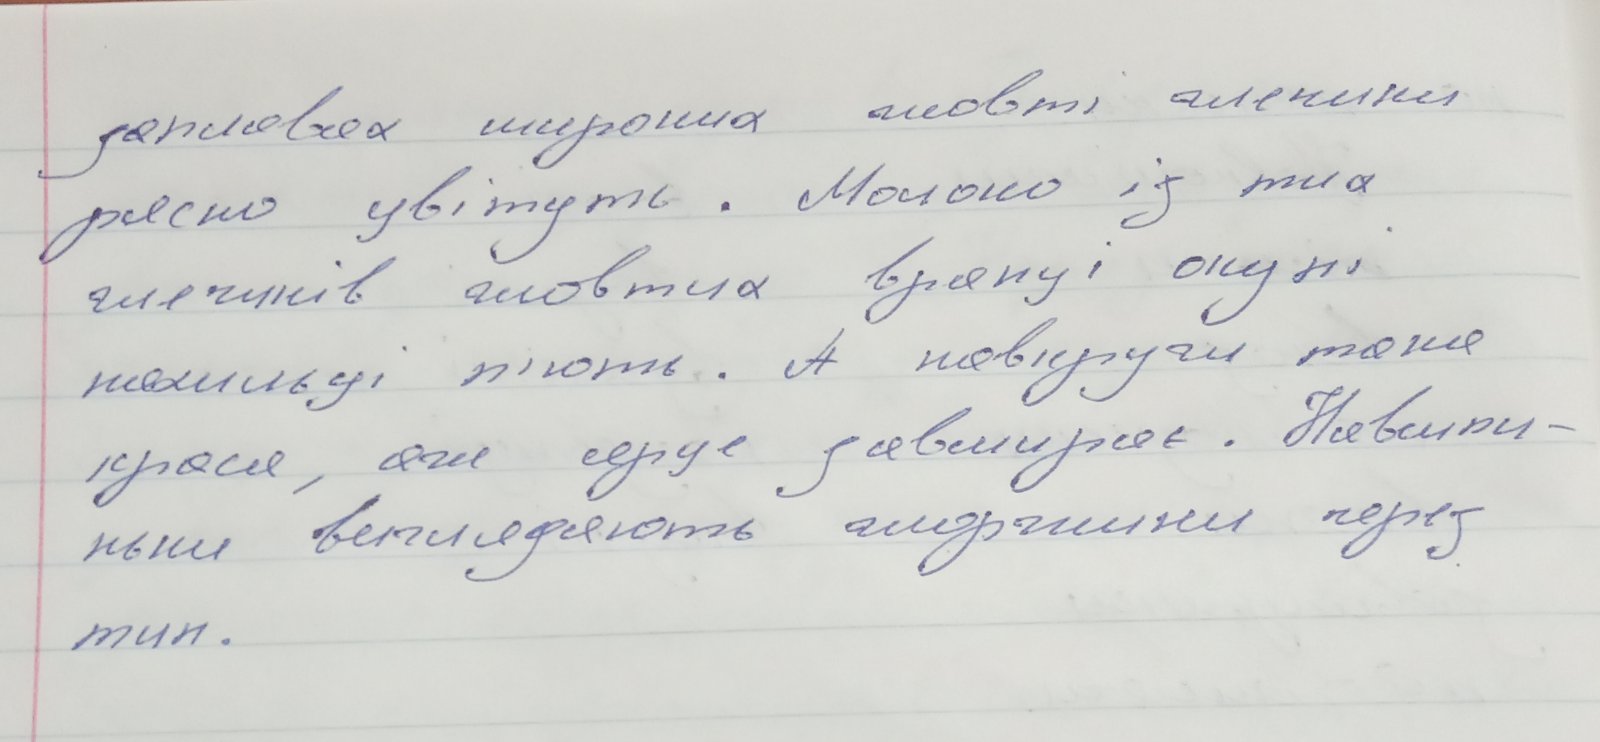 заплавах широких жовті глечики
рясно цвітуть. Молоко із тих
глечиків жовтих вранці окуні
нахильці п'ють. А навкруги така
краса, аж серце завмирає. Навшпи-
ньки виглядають чорткики через
тин.